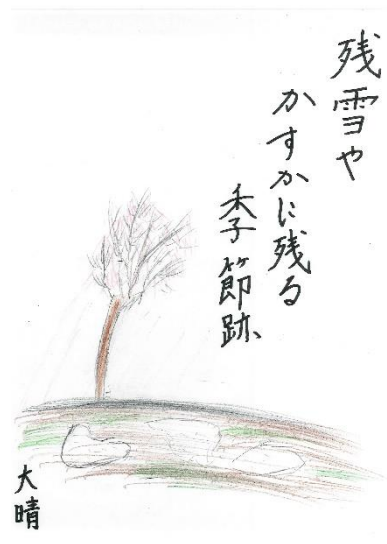 残雪や
かすかに残る
季節跡
大晴